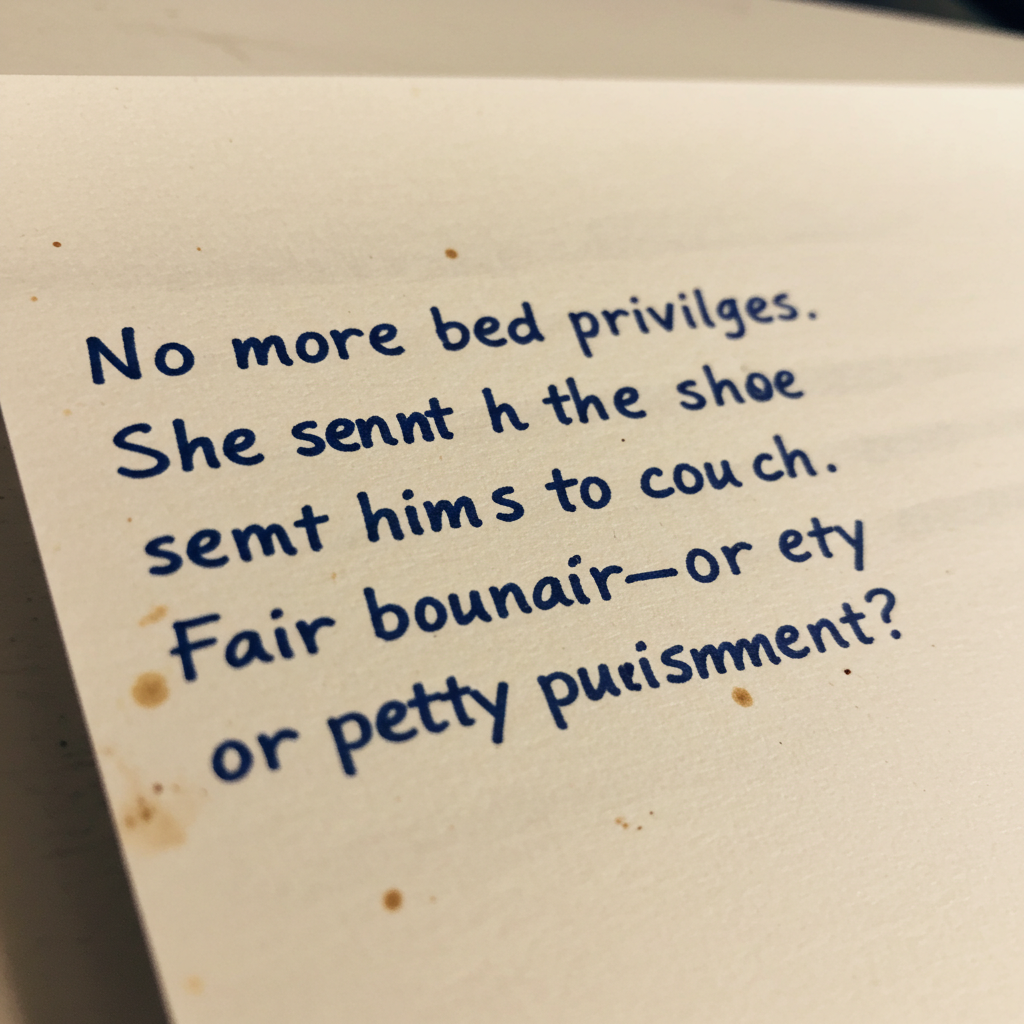 No more bed privilges.
She sennt h the shoe
semt him s to cou ch.
Fair bounair—or ety
or petty purismment?